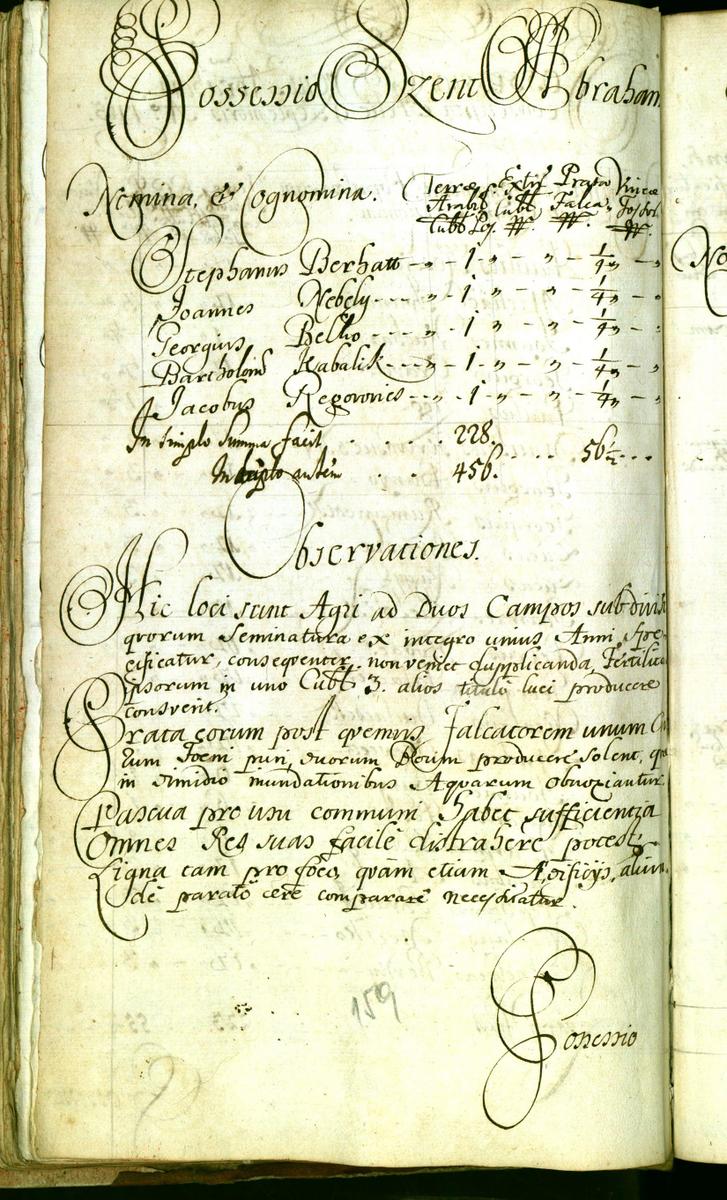 Possessio Szent Abraham
Nomina, & Cognomina. Terræ Extir Prata Vineæ
Arabil Cubb Falca Fossor
Cubb Pos. ##. ##. ##.
Stephanus Berhatt - „ - 1 - „ - „ - 1/4 „ - „
Joannes Nebely - - - „ - 1 „ - „ - 1/4 „ - „
Georgius Belko - - - „ - 1 „ - „ - 1/4 „ - „
Bartholom Habalik - - - „ - 1 „ - „ - 1/4 „ - „
Jacobus Regorovics - - „ - 1 „ - „ - 1/4 „ - „
In simplo Summa facit . . . . 228. . . . . 56 1/2 . . .
In duplo autem . . 456.
Observationes.
Hic loci sunt Agri ad Duos Campos subdivisi
qvorum Seminatura ex integro unius Anni Spe-
cificatur, conseqventer non veniet dupplicanda, Fertilitas
ipsorum in uno Cubb 3. alios titulo luci producere
consvevit.
Prata eorum post qvemvis Falcatorem unum
rum Foeni puri, duorum Boum producere solent, qvæ
in dimidio inundationibus Aquarum obnoxiantur.
Pascua pro usu communi habet sufficientia
Omnes Res suas facilè distrahere potest.
Ligna tam pro foco, qvam etiam Ædificijs, aliun-
de parato ære comparare necessitatur.
159
Possessio